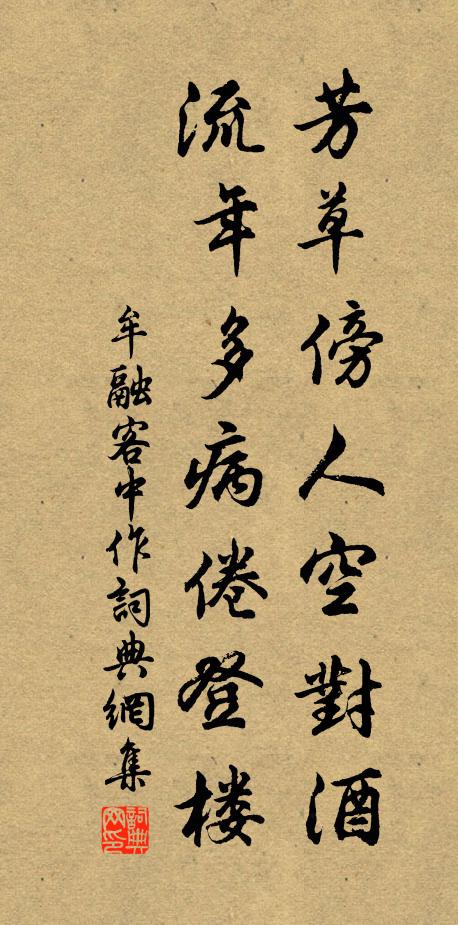 芳草傍人空對酒
流年多病倦登楼
牟融客中作詞典網集
詞典網印